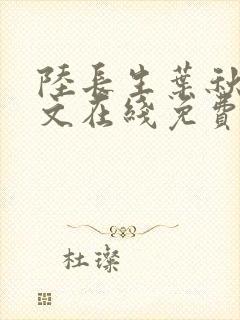 陸長生葉秋
文在綫免費
杜璨